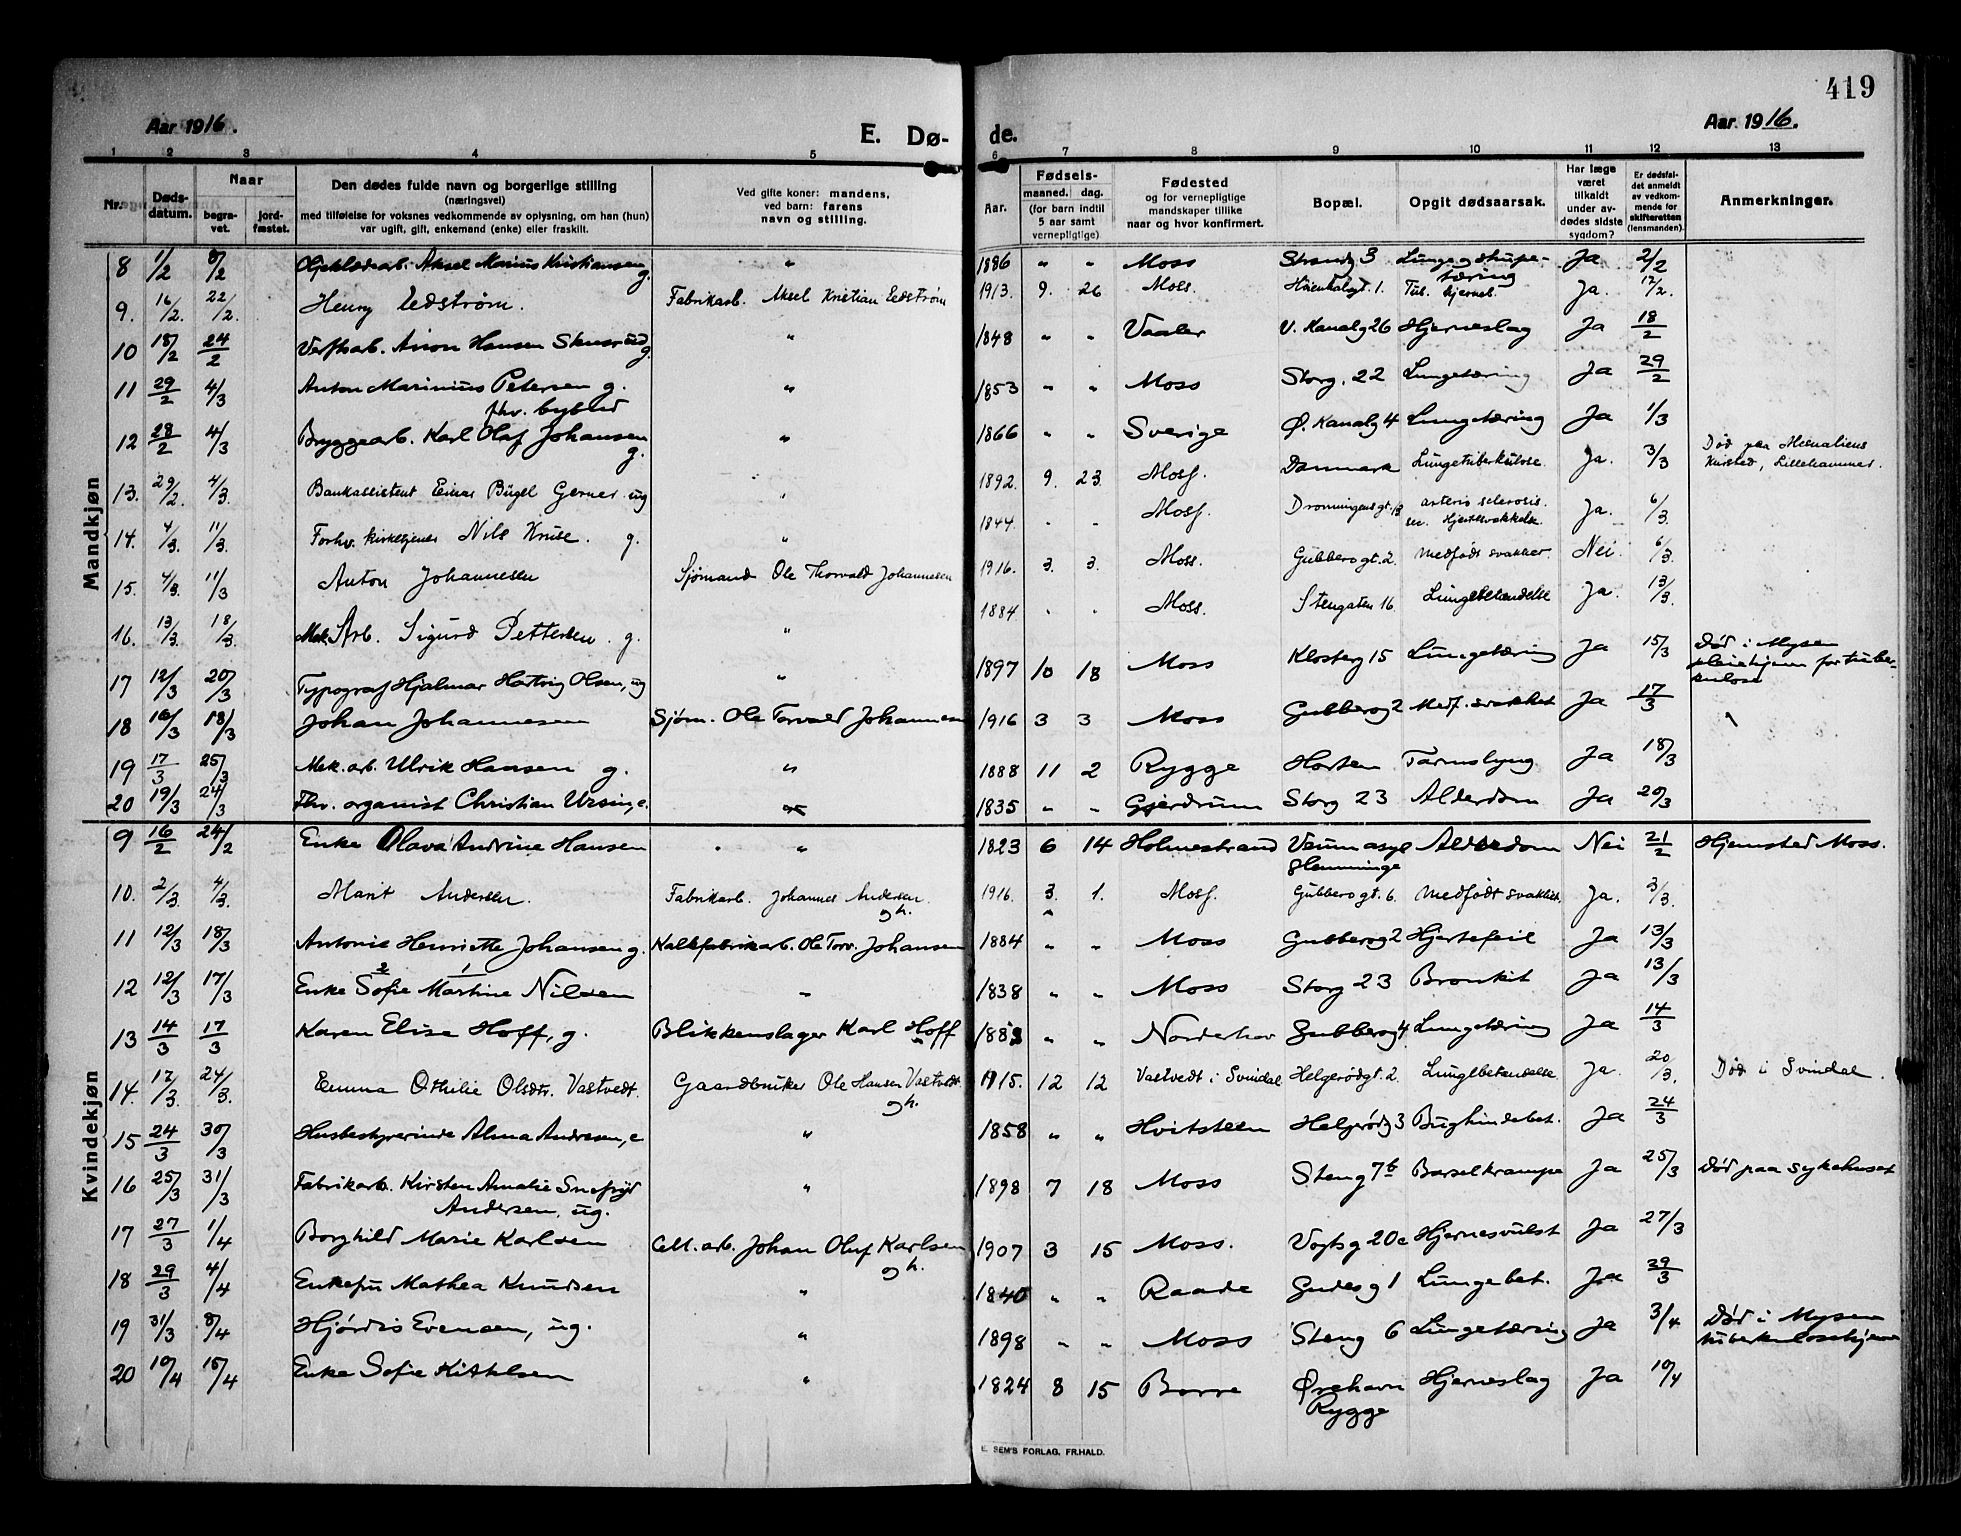 419
Aar 1916.
E. Dø-
de.
Aar 1916.
1 2 3 4 5 6 7 8 9 10 11 12 13
Nr.
Døds-
datum.
Naar
begra-
vet.
jord-
fæstet.
Den dødes fulde navn og borgerlige stilling
(næringsvei)
med tilføielse for voksnes vedkommende av oplysning, om han (hun)
var ugift, gift, enkemand (enke) eller fraskilt.
Ved gifte koner: mandens,
ved barn: farens
navn og stilling.
Aar.
Fødsels-
maaned. dag.
(for barn indtil
5 aar samt
vernepligtige)
Fødested
og for vernepligtige
mandskaper tillike
naar og hvor konfirmert.
Bopæl.
Opgit dødsaarsak.
Har læge
været
tilkaldt
under av-
dødes sidste
sygdom?
Er dødsfal-
det anmeldt
av vedkom-
mende for
skifteretten
(lensmanden).
Anmerkninger.
Mandkjøn
8 1/2 8/2 Aksel Marius Kristiansen g. " 1886 " " Moss Strandg 3 Lunge og strupe-tæring Ja 2/2
9. 16/2. 22/2. Henry Eedstrøm. Fabrikarb. Aksel Kristian Eedstrøm 1913. 9. 26 Moss. 1. Tub. Ja. 17/2.
10 18/2 24/2 Verftsarb. Anon Hansen g. " 1848 " " Vaaler V. Kanalg 26 Hjerneslag Ja 18/2
11 29/2 4/3 Anton Marinius Petersen g. fhv. bybud " 1853 " " Moss Storg. 22 Lungetæring Ja 29/2
12 28/2 4/3 Bryggearb. Karl Olaf Johansen g. " 1866 " " Sverige Ø. Kanalg 4 Lungetæring Ja 1/3
13. 29/2. 4/3. Bankassistent Einar Bügel Gerner ug " 1892. 9. 23. Moss. Danmark Lungetuberkulose. Ja. 3/3 Død paa Mesnaliens Kursted, Lillehammer.
14. 4/3. 11/3. Forhv. kirketjener Nils Kruse. g. " 1844. " " Moss. Dronningensgt. 13 arterio sclerosis sen. Hjertesvakkelse. Ja. 6/3.
15. 4/3. 11/3 Anton Johannesen Sjømand Ole Thorvald Johannesen 1916. 3. 3. Moss. Gubberogt. 2. Medfødt svakhet. Nei. 6/3.
16. 13/3. 18/3. Mek. Arb. Sigurd Pettersen. g. " 1884 " " Moss. Stengaten 16. Lungebetændelse Ja. 13/3.
17 12/3 20/3 Typograf Hjalmar Hartvig Olsen, ug " 1897 10 18 Moss Klosterg 15 Lungetæring Ja 15/3 Død i Mysen pleiehjem for tuber-kulose
18 16/3 18/3 Johan Johannesen Sjøm. Ole Torvald Johannesen 1916 3 3 Moss Gubberog 2 Medf. svakhet Ja 17/3
19 17/3 25/3 Mek. arb. Ulrik Hansen g. " 1888 11 2 Rygge Horten Tarmslyng Ja 18/3
20 19/3 24/3 Fhv. organist Christian Ursin, e. " 1835 " " Gjerdrum Storg 23 Alderdom Ja 20/3
Kvindekjøn
9 16/2 24/2 Enke Olava Andrine Hansen " 1823 6 14 Holmestrand Veumasyl Glemminge Alderdom Nei 21/2 Hjemsted Moss.
10. 2/3. 4/3. Marit Andersen. Fabrikarb. Johannes Andersen. gh. 1916. 3. 1. Moss. Gubberogt. 6. Medfødt svakhet. Ja. 3/3.
11 12/3 18/3 Antonie Henriette Johansen g. Kalkfabrikarb. Ole Torv. Johansen 1884 " " Moss Gubberog 2 Hjertefeil Ja 13/3
12 12/3 17/3 Enke Sofie Martine Nilsen " 1838 " " Moss Storg 23 Bronkit Ja 13/3
13 14/3 17/3 Karen Elise Hoff, g. Blikkenslager Karl Hoff " " Norderhov Gubberog 4 Lungetæring Ja 14/3
14. 17/3. 24/3. Emma Othilie Olsdtr. Vastvedt. Gaardbruker Ole Hansen Vastvedt. gh. 1915. 12 12 Vastvedt i Svindal Helgerødgt. 2. Lungebetændelse. Ja. 20/3. Død i Svindal.
15 24/3 30/3 Husbestyrerinde Alma Andresen, e " 1858 " " Hvitsteen Helgerødg 3 Bughindebet. Ja 24/3
16 25/3 31/3 Fabrikarb. Kirsten Amalie Snefryd Andersen, ug. " 1898 7 18 Moss Steng 7b Barselkrampe Ja 25/3 Død paa sykehuset
17 27/3 1/4 Borghild Marie Karlsen Cell. arb. Johan Oluf Karlsen gh. 1907 3 15 Moss. Vogtsg 20c Hjernesvulst Ja 27/3
18 29/3 4/4 Enkefru Mathea Knudsen " 1840 " " Raade Gudesg 1 Lungebet. Ja 29/3
19 31/3 8/4 Hjørdis Evensen, ug. " 1898 " " Moss Steng 6 Lungetæring Ja 3/4 Død i Mysen tuberkulosehjem
20 10/4 15/4 Enke Sofie Kittelsen " 1824 8 15 Borre Ørehavn Rygge Hjerneslag Ja 10/4
E. SEM'S FORLAG, FR.HALD.